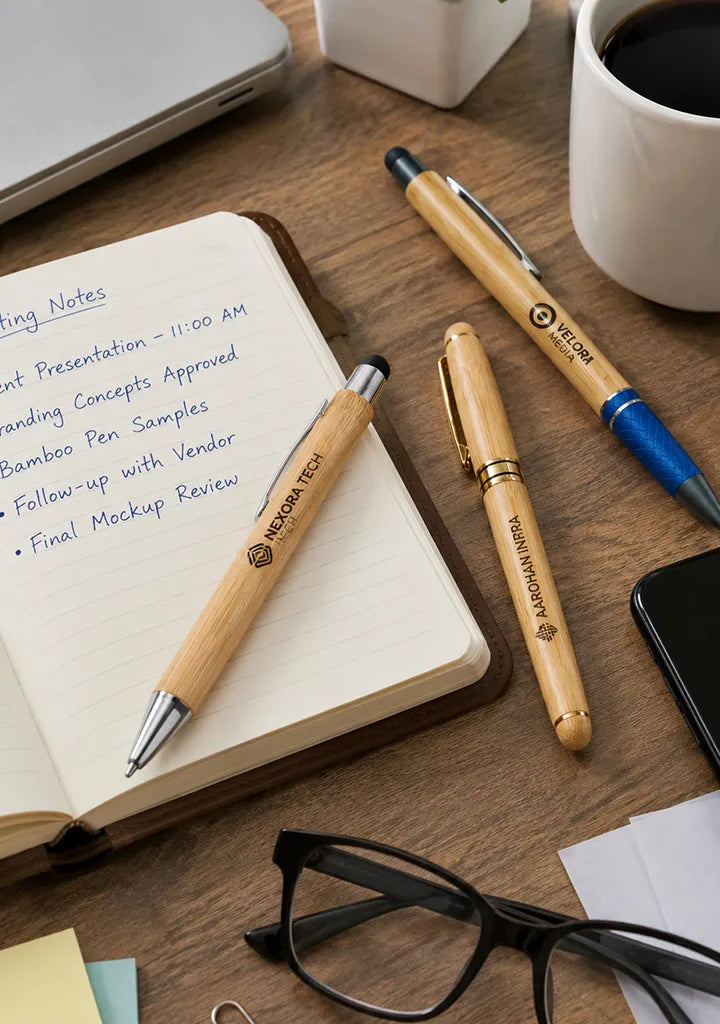 ting Notes
ent Presentation – 11:00 AM
randing Concepts Approved
Bamboo Pen Samples
• Follow-up with Vendor
• Final Mockup Review
NEXORA TECH
TECH
AAROHAN INFRA
VELORA
MEDIA